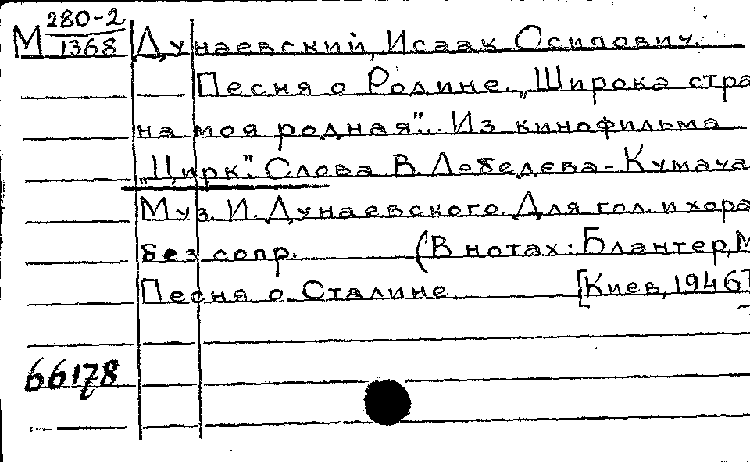 М 280-2/1368 Дунаевский, Исаак Осипович.
Песня о Родине. „Широка стра
на моя родная". Из кинофильма
„Цирк". Слова В. Лебедева-Кумача
Муз. И. Дунаевского. Для гол. и хора
без сопр. (В нотах: Блантер, М
Песня о Сталине [Киев, 1946]
66178